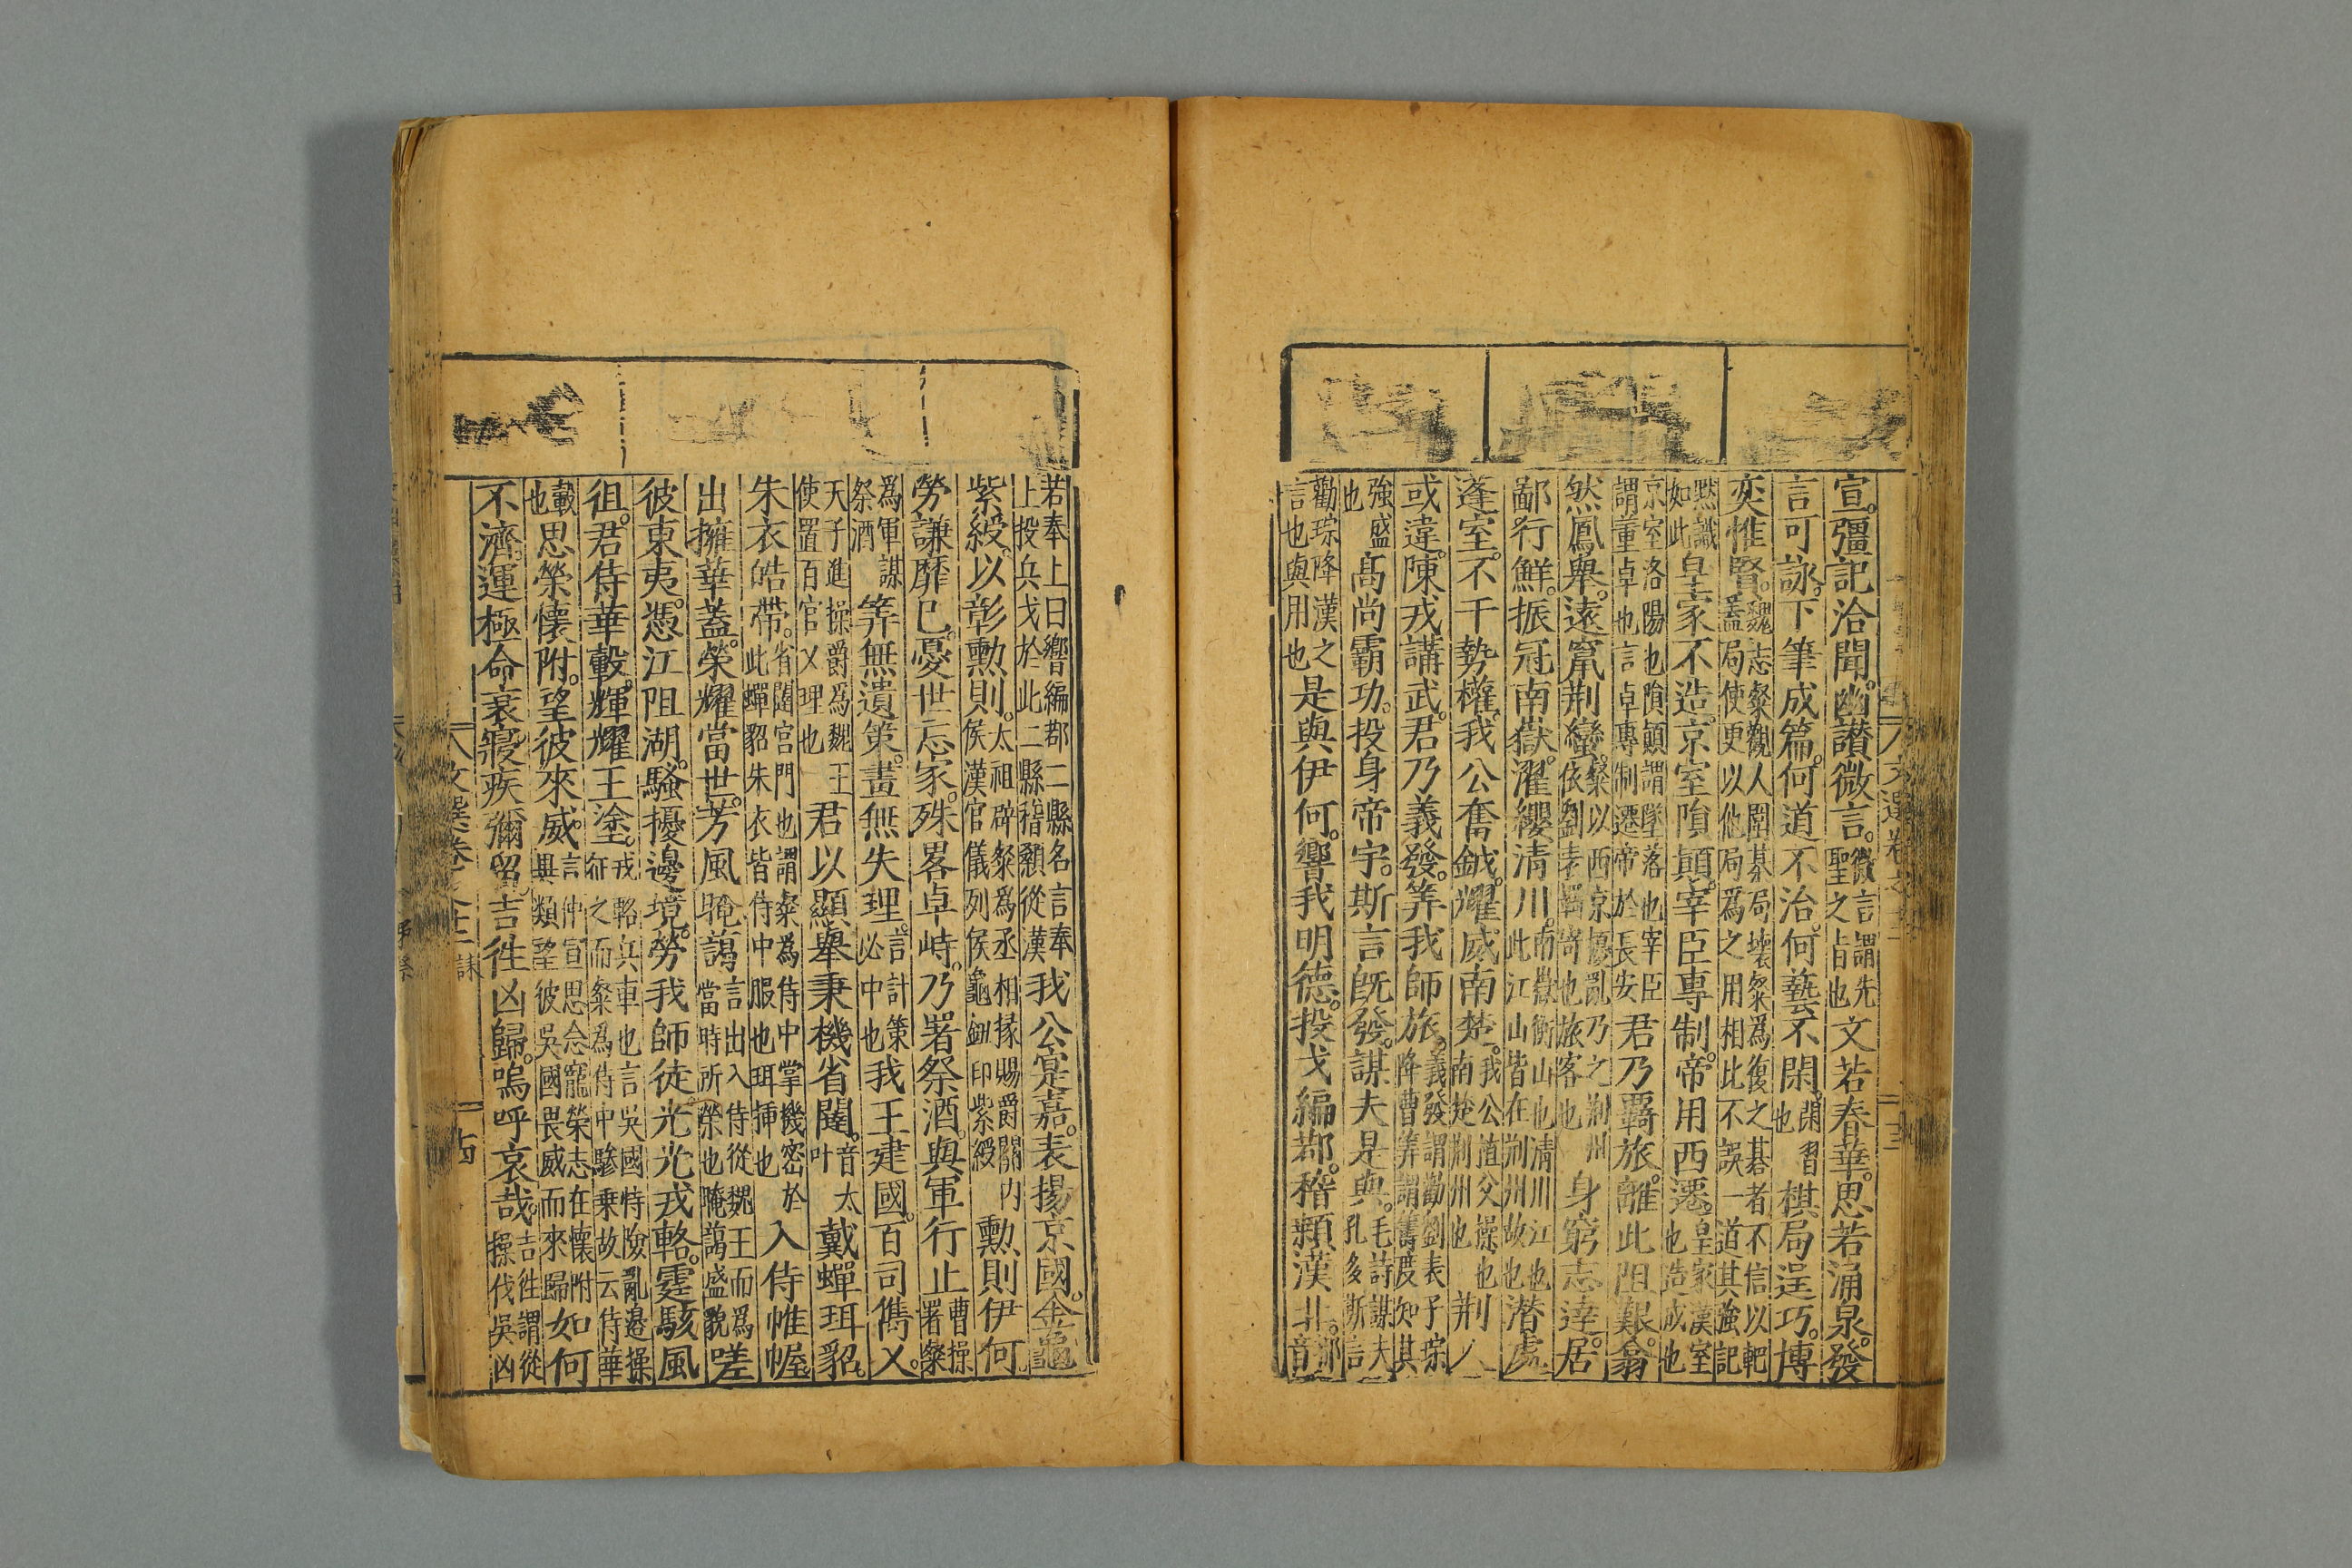 宣。彊記洽聞。幽讃微言。微言謂先聖之旨也文若春華。思若涌泉。發
言可詠。下筆成篇。何道不洽。何藝不閑。閑習也棋局逞巧。博
奕惟賢。魏志粲觀人圍棊局壞粲為復之棊者不信以帊蓋局使更以他局為之用相比不誤一道其強記
黙識如此皇家不造。京室隕顛。宰臣專制。帝用西遷。皇家漢室也造成也
京室洛陽也隕顛謂墜落也宰臣謂董卓也言卓專制遷帝於長安君乃羇旅。離此阻艱。翕
然鳳舉。遠竄荆蠻。粲以西京擾亂乃之荆州依劉表羇寄也旅客也身窮志達。居
鄙行鮮。振冠南嶽。濯纓清川。南嶽衡山也清川江也此江山皆在荆州故也潜處
蓬室。不干勢權。我公奮鉞。耀威南楚。我公植父操也南楚荆州也荆人
或違。陳戎講武。君乃義發。筭我師旅。義發謂勸劉表子琮降曹筭謂籌度知其
強盛也高尚霸功。投身帝宇。斯言既發。謀夫是與。毛詩謀夫孔多斯言
勸琮降漢之言也與用也是與伊何。響我明德。投戈編鄀。稽顙漢北。鄀音
若奉上曰響編鄀二縣名言奉上投兵戈於此二縣稽顙從漢我公寔嘉。表揚京國。金龜
紫綬。以彰勲則。太祖辟粲為丞相掾賜爵關内侯漢官儀列侯龜鈕印紫綬勲則伊何
勞謙靡已。憂世忘家。殊畧卓峙。乃署祭酒。與軍行止曹操署粲
為軍謀祭酒筭無遺策。畫無失理。言計策必中也我王建國。百司儁乂。
天子進操爵為魏王使置百官乂理也君以顯舉秉機省闥。音太叶戴蟬珥貂。
朱衣皓帶。省闥宮門也謂粲為侍中掌機密於此蟬貂朱衣皆侍中服也珥揷也入侍帷幄
出擁華蓋。榮耀當世。芳風晻藹言出入侍從魏王而為當時所榮也晻藹盛貌嗟
彼東夷。憑江阻湖。騷擾邊境。勞我師徒光光戎輅。霆駭風
徂。君侍華轂。輝耀王塗。戎輅兵車也言吳國恃險亂邉操征之而粲為侍中驂乗故云侍華
轂也思榮懷附。望彼來威。言仲宣思念寵榮志在懷附與類望彼吳國畏威而來歸如何
不濟。運極命衰寢疾彌留吉徃凶歸。嗚呼哀哉。吉徃謂從操伐吳凶
文選卷之
誄
十四